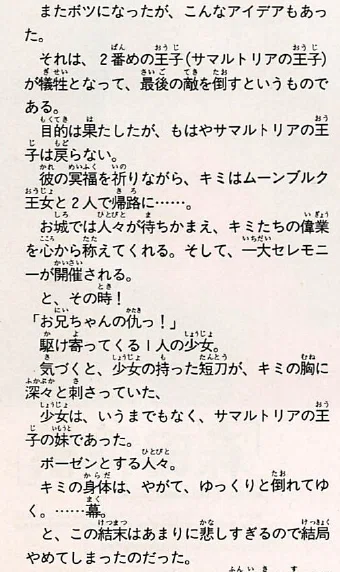 またボツになったが、こんなアイデアもあっ
た。
それは、2番めの王子(サマルトリアの王子)
が犠牲となって、最後の敵を倒すというもので
ある。
目的は果たしたが、もはやサマルトリアの王
子は戻らない。
彼の冥福を祈りながら、キミはムーンブルク
王女と2人で帰路に……。
お城では人々が待ちかまえ、キミたちの偉業
を心から称えてくれる。そして、一大セレモニ
ーが開催される。
と、その時!
「お兄ちゃんの仇っ!」
駆け寄ってくる1人の少女。
気づくと、少女の持った短刀が、キミの胸に
深々と刺さっていた、
少女は、いうまでもなく、サマルトリアの王
子の妹であった。
ボーゼンとする人々。
キミの身体は、やがて、ゆっくりと倒れてゆ
く。……幕。
と、この結末はあまりに悲しすぎるので結局
やめてしまったのだった。